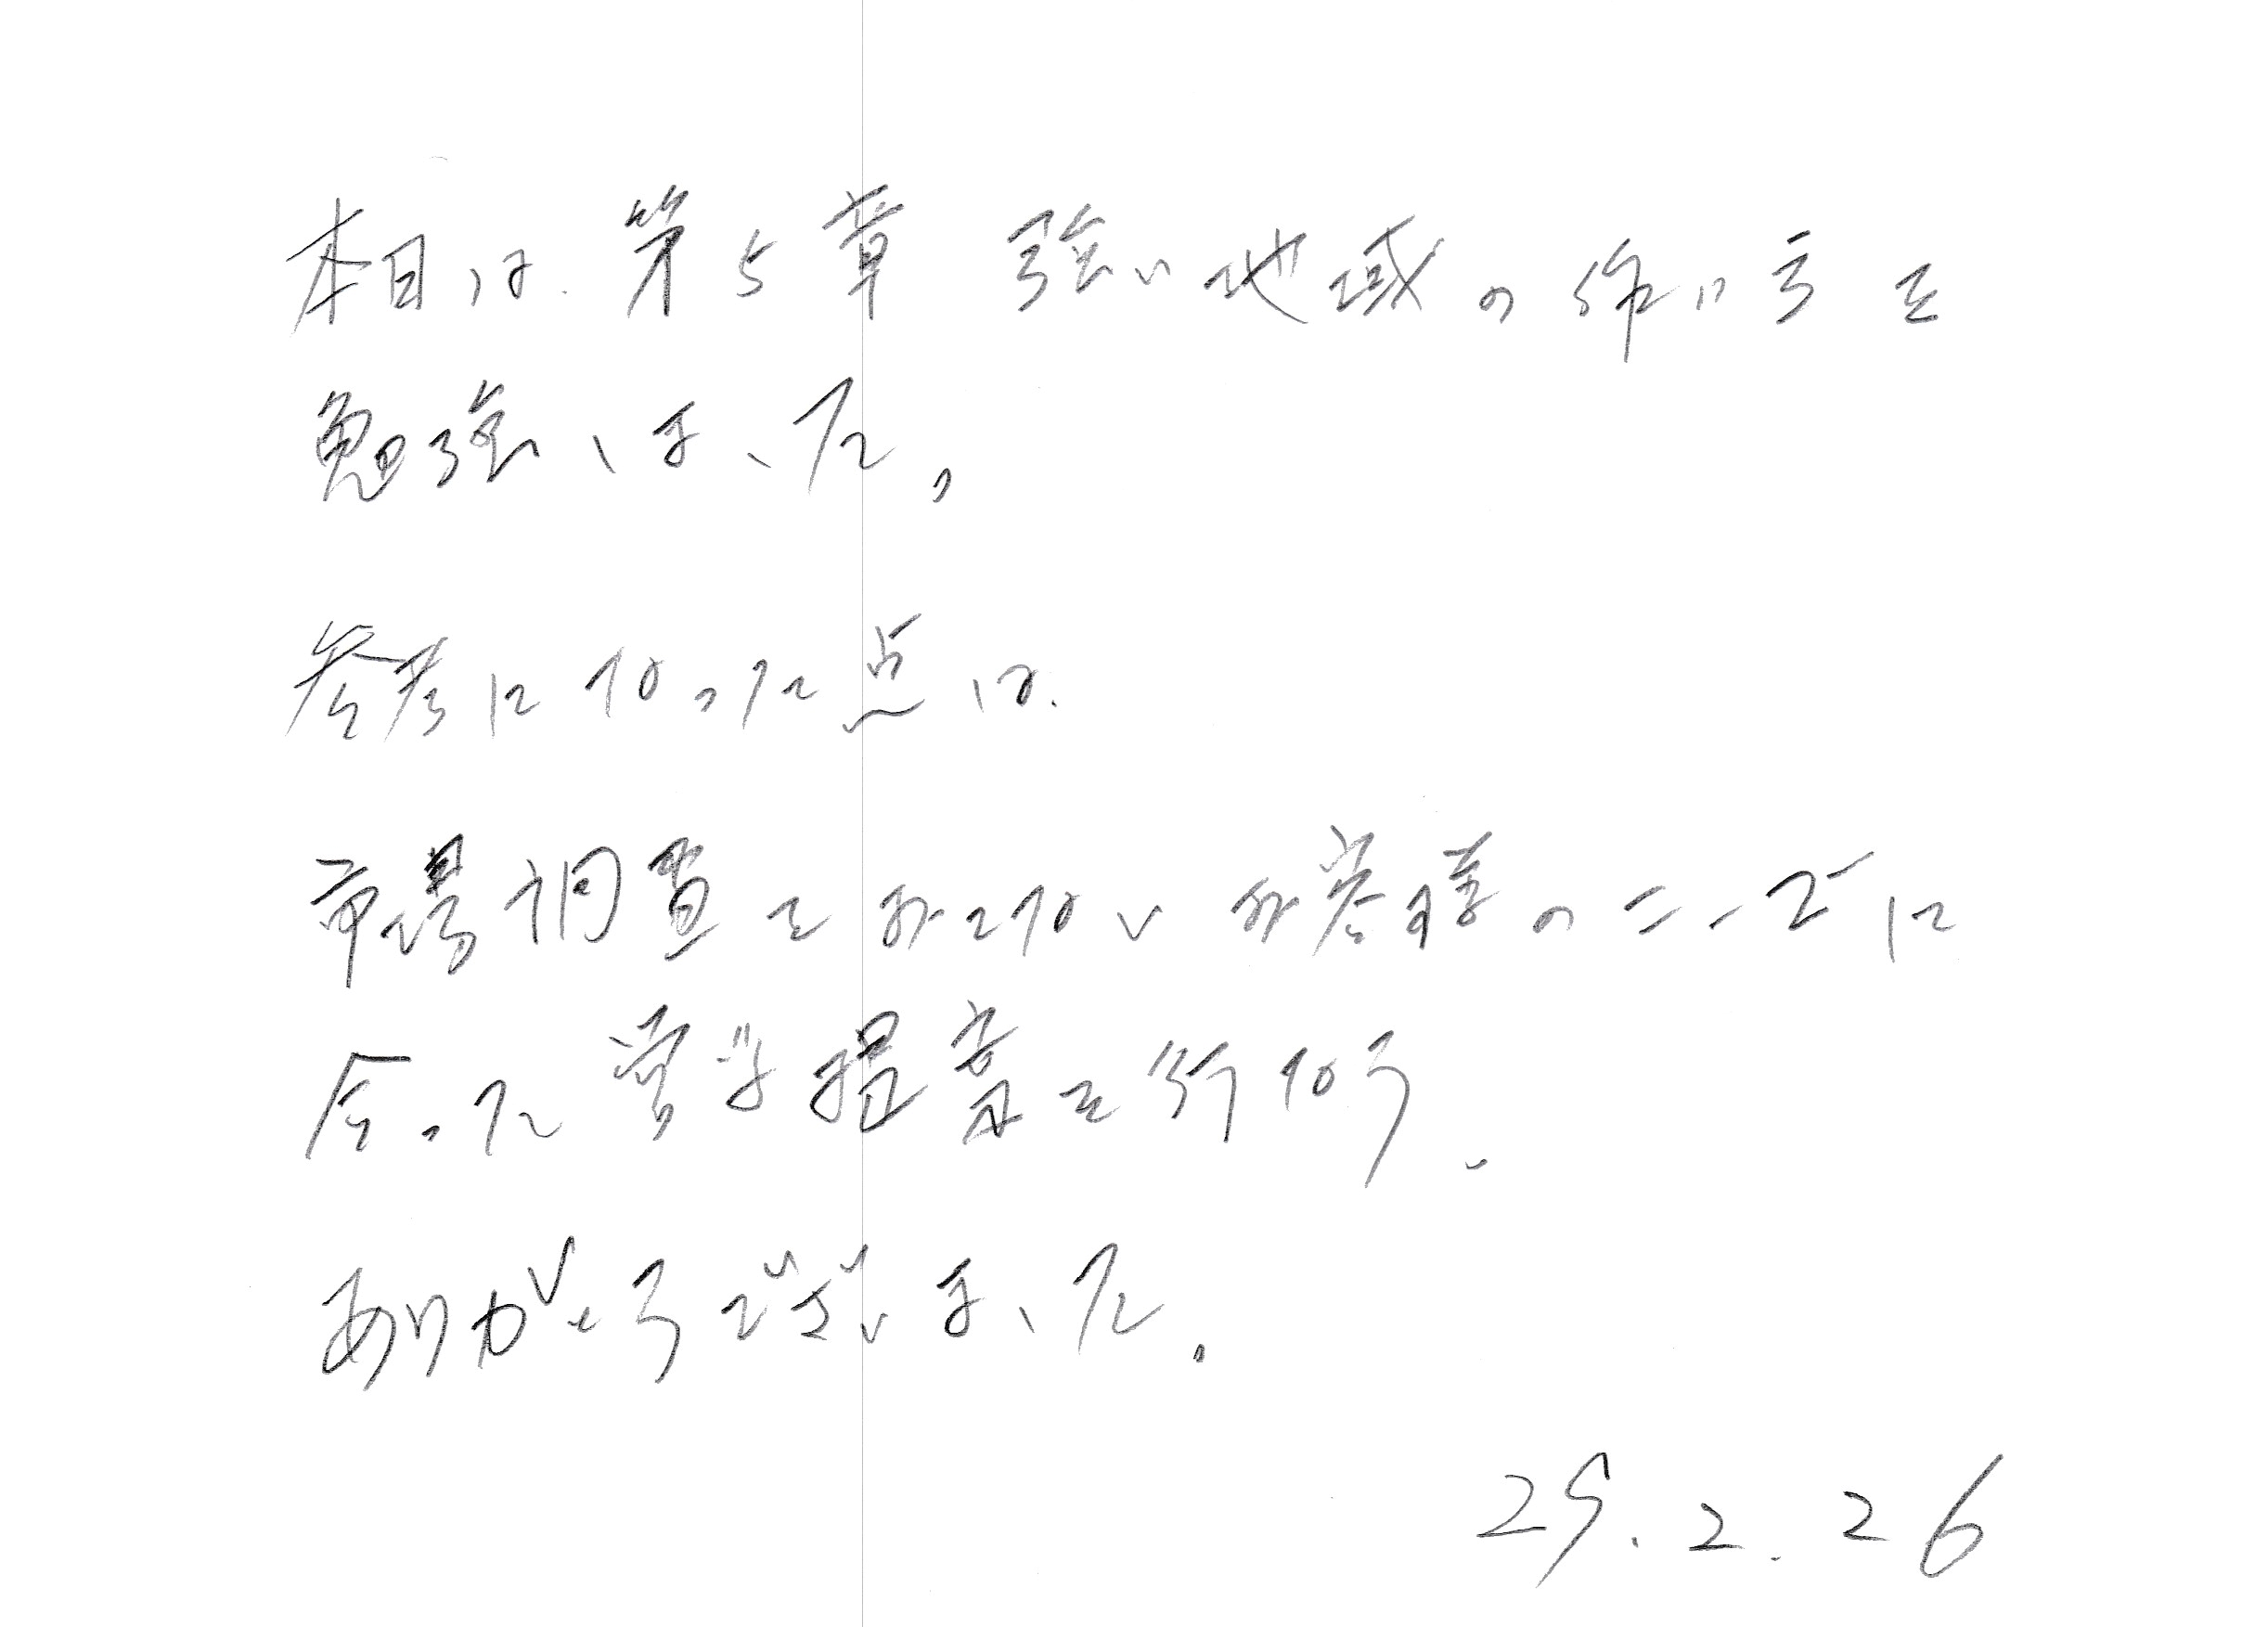 本日は、第5章 強い地域の作り方を
勉強しました。
参考になった点は、
市場調査をおこない お客様のニーズに
合った営業提案を行なう、
ありがとうございました。
29.2.26